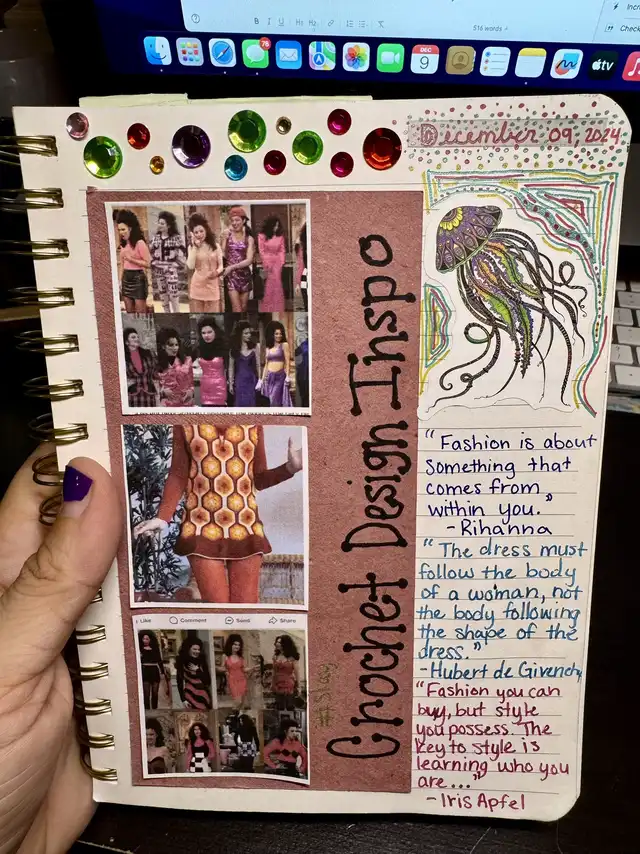 516 words
Incr
Check
76
DEC
9
tv
December 09, 2024
Like Comment Send Share
#Slay
Crochet Design Inspo
"Fashion is about
something that
comes from
within you."
-Rihanna
"The dress must
follow the body
of a woman, not
the body following
the shape of the
dress."
-Hubert de Givenchy
"Fashion you can
buy, but style
you possess. The
key to style is
learning who you
are..."
-Iris Apfel